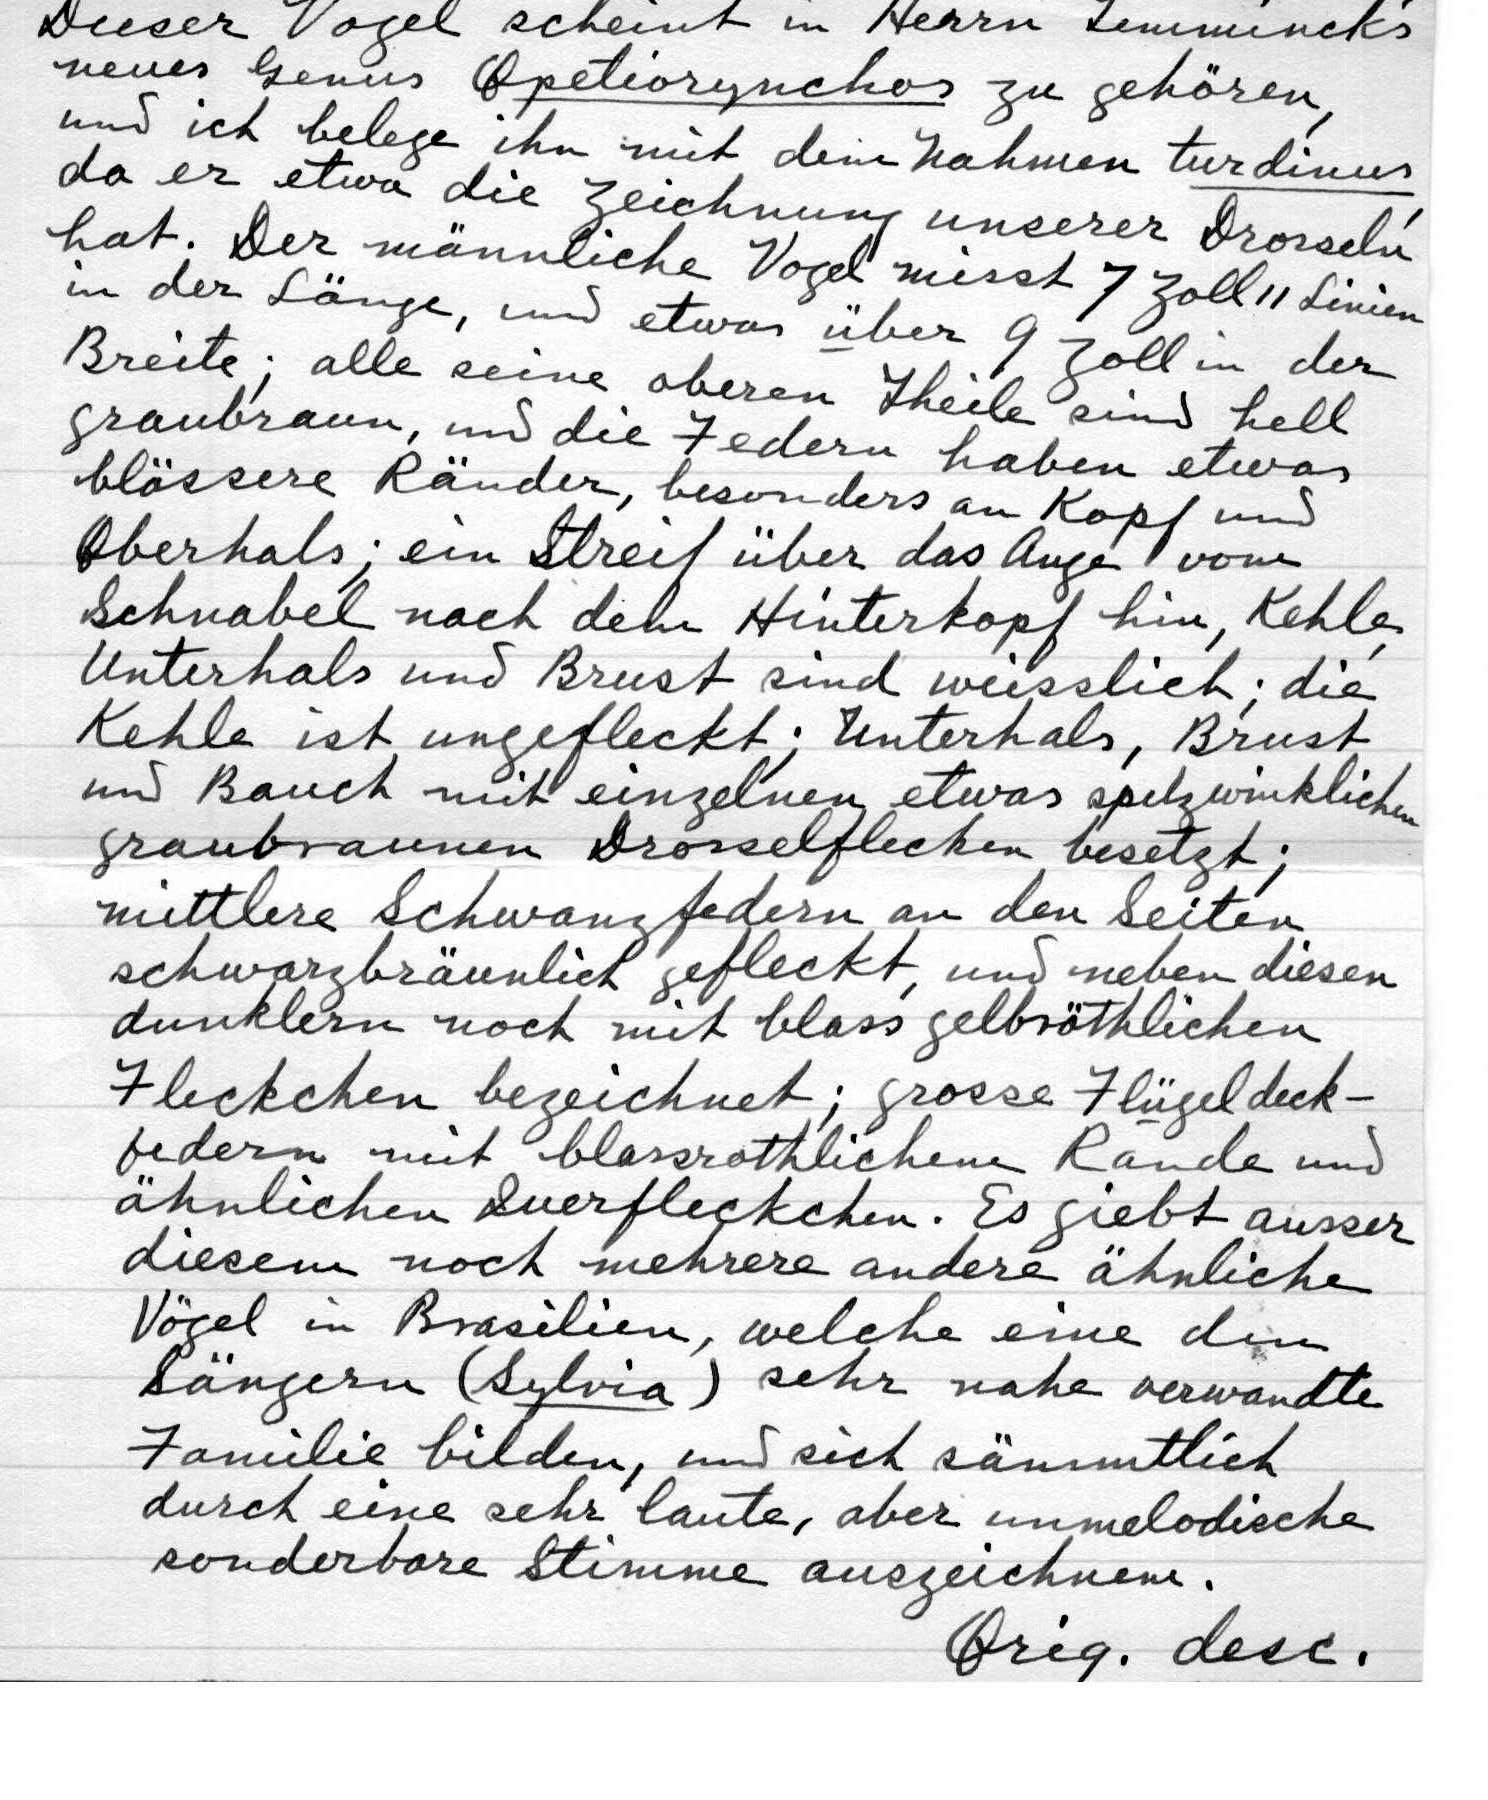 Dieser Vogel scheint in Herrn Temminck's
neues Genus Opetiorynchos zu gehören,
und ich belege ihn mit dem Nahmen turdinus,
da er etwa die Zeichnung unserer Drosseln
hat. Der männliche Vogel misst 7 Zoll 11 Linien
in der Länge, und etwas über 9 Zoll in der
Breite; alle seine oberen Theile sind hell
graubraun, und die Federn haben etwas
blässere Ränder, besonders an Kopf und
Oberhals; ein Streif über das Auge vom
Schnabel nach dem Hinterkopf hin, Kehle,
Unterhals und Brust sind weisslich; die
Kehle ist ungefleckt; Unterhals, Brust
und Bauch mit einzelnen etwas spitzwinklichen
graubraunen Drosselflecken besetzt;
mittlere Schwanzfedern an den Seiten
schwarzbräunlich gefleckt, und neben diesen
dunklern noch mit blass gelbröthlichen
Fleckchen bezeichnet; grosse Flügeldeck-
federn mit blassrothlichem Rande und
ähnlichen Querfleckchen. Es giebt ausser
diesem noch mehrere andere ähnliche
Vögel in Brasilien, welche eine den
Sängern (Sylvia) sehr nahe verwandte
Familie bilden, und sich sämmtlich
durch eine sehr laute, aber unmelodische
sonderbare Stimme auszeichnen.
Orig. desc.